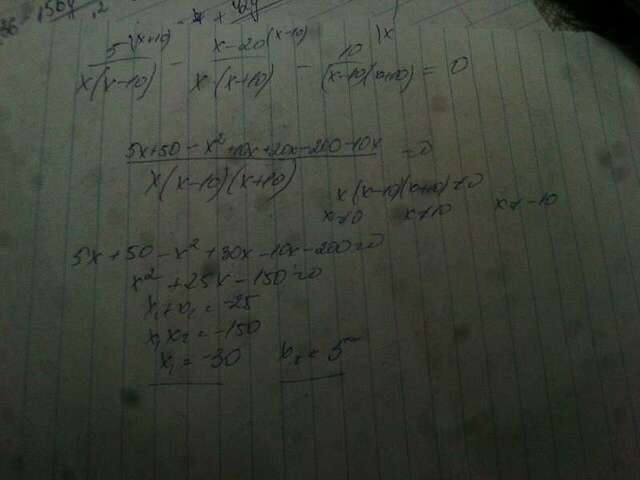 5 (x+10) / x(x-10) - x-20 (x-10) / x(x+10) - 10 (x / (x-10)(x+10) = 0
5x+50-x²+10x+20x-200-10x / x(x-10)(x+10) = 0
x(x-10)(x+10)≠0
x≠0 x≠10 x≠-10
5x+50-x²+30x-10x-200=0
x²+25x-150=0
x₁+x₂=-25
x₁x₂=-150
x₁=-30 x₂=5